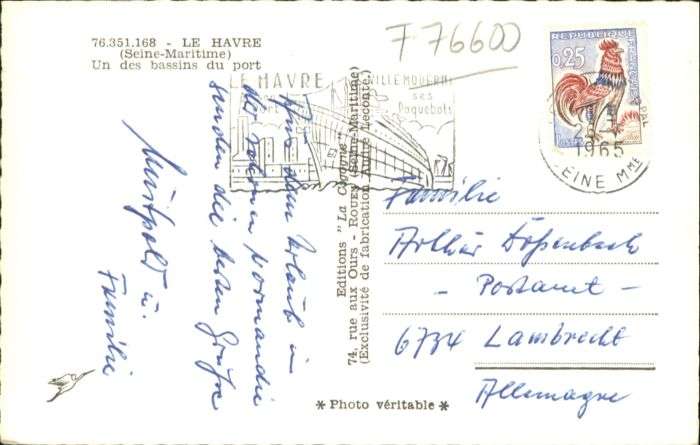 76.351.168 - LE HAVRE
(Seine-Maritime)
Un des bassins du port
F 76600
LE HAVRE
VILLE MODERNE
ses
Paquebots
REPUBLIQUE FRANÇAISE
0,25
POSTES
1965
SEINE MME
Aus dem Urlaub in
der schönen Normandie
senden die besten Grüße
Familie
Editions "La Cigogne"
74, rue aux Ours - ROUEN (Seine-Maritime)
(Exclusivité de fabrication André Leconte.)
Familie
Arthur
- Postamt -
6734 Lambrecht
Allemagne
* Photo véritable *